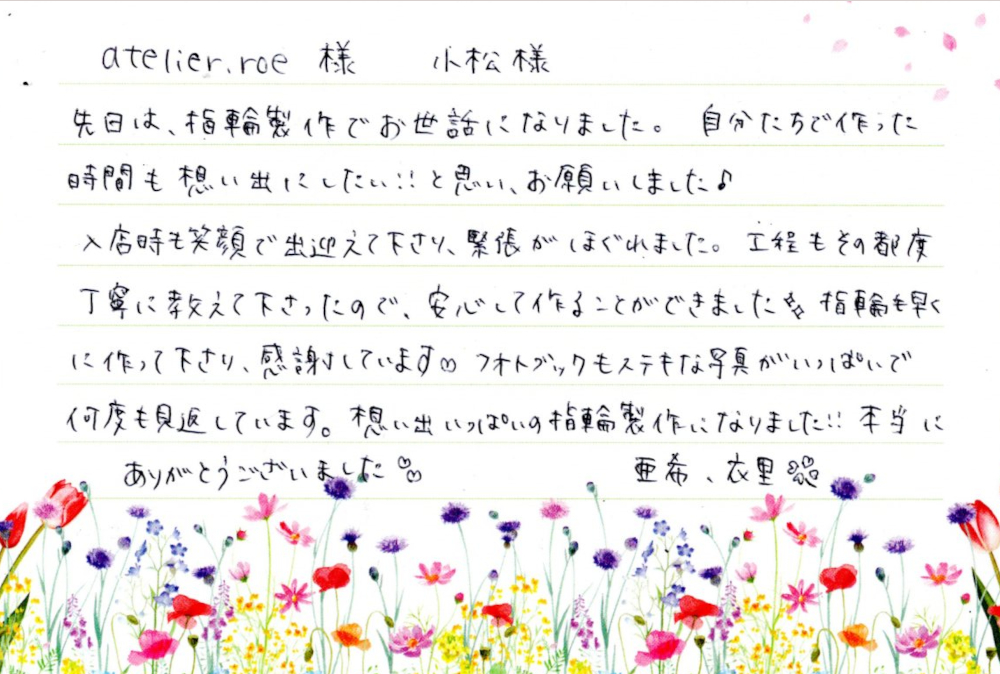 atelier.roe 様　小松様
先日は、指輪製作でお世話になりました。 自分たちで作った
時間も想い出にしたい!!と思い、お願いしました♪
入店時も笑顔で出迎えて下さり、緊張がほぐれました。 工程もその都度
丁寧に教えて下さったので、安心して作ることができました✨ 指輪も早く
に作って下さり、感謝しています♡ フォトブックもステキな写真がいっぱいで
何度も見返しています。想い出いっぱいの指輪製作になりました!! 本当に
ありがとうございました♡ 亜希、衣里